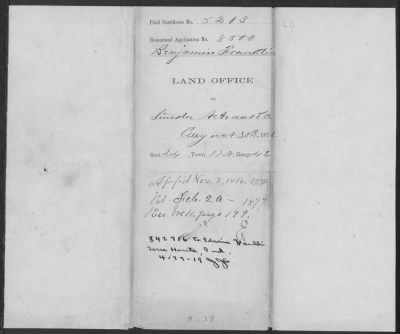 Final Certificate No. 5203
Homestead Application No. 8500
Benjamin Franklin
LAND OFFICE
Lincoln Nebraska
August 30th
Sect. 24, Town. Range 4 E
App'd Nov. 3,
Pat. Feb. 20 - 187
Rec page 199.
842706 to Edwin Franklin
Terre Haute, Ind.
4-29-19
3-39
29